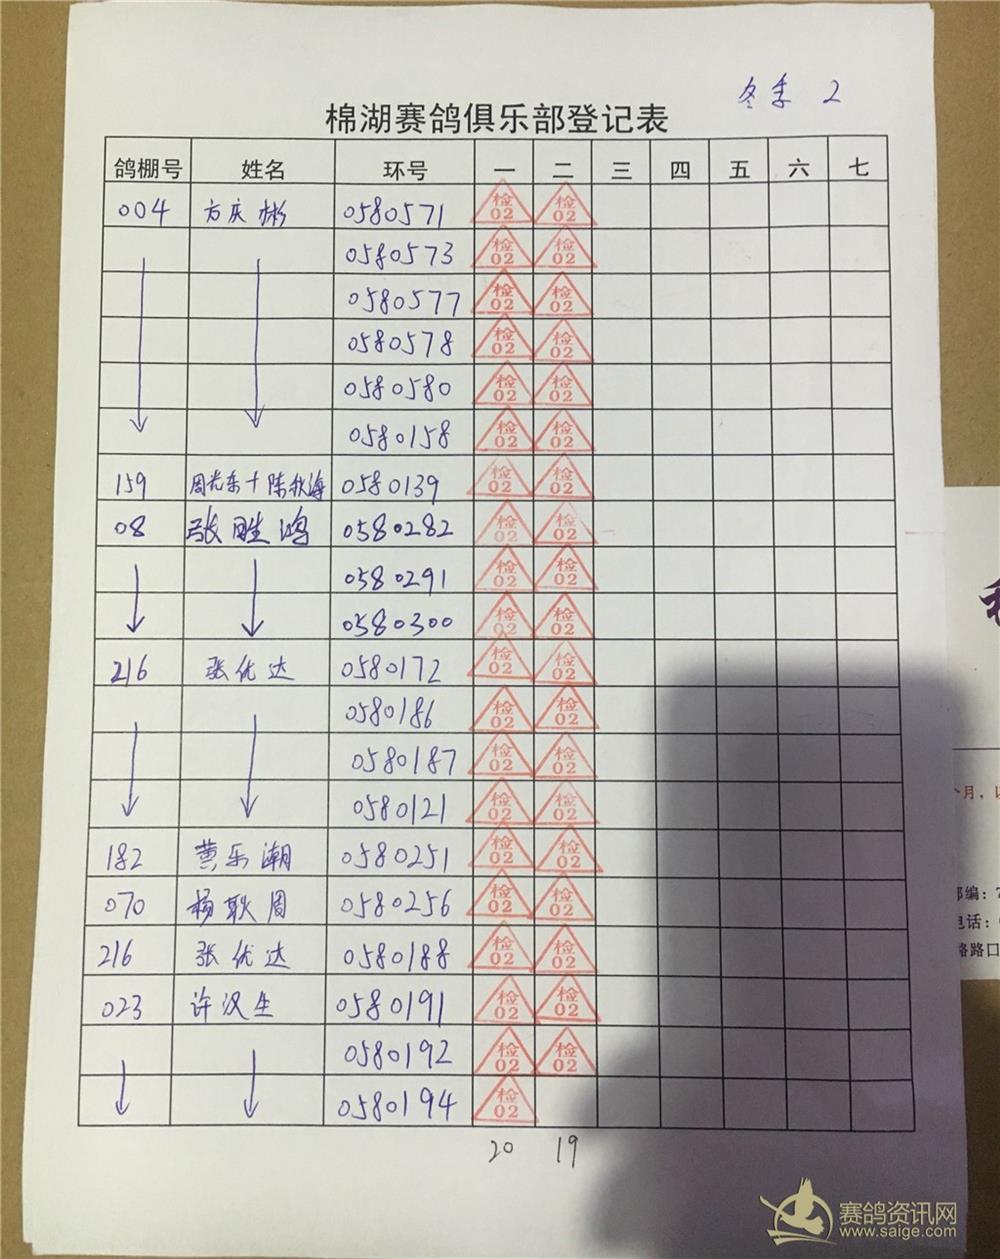 冬季 2
棉湖赛鸽俱乐部登记表
鸽棚号 姓名 环号 一 二 三 四 五 六 七
004 方庆彬 0580571 检02 检02
0580573 检02 检02
0580577 检02 检02
0580578 检02 检02
0580580 检02 检02
0580158 检02 检02
159 周光东十陈秋海 0580139 检02 检02
08 张胜鸿 0580282 检02 检02
0580291 检02 检02
0580300 检02 检02
216 张优达 0580172 检02 检02
0580186 检02 检02
0580187 检02 检02
0580121 检02 检02
182 黄乐潮 0580251 检02 检02
070 杨耿周 0580256 检02 检02
216 张优达 0580188 检02 检02
023 许汉生 0580191 检02 检02
0580192 检02 检02
0580194 检02
20 19
个月，以
邮编：7
电话：
路路口
赛鸽资讯网
www.saige.com